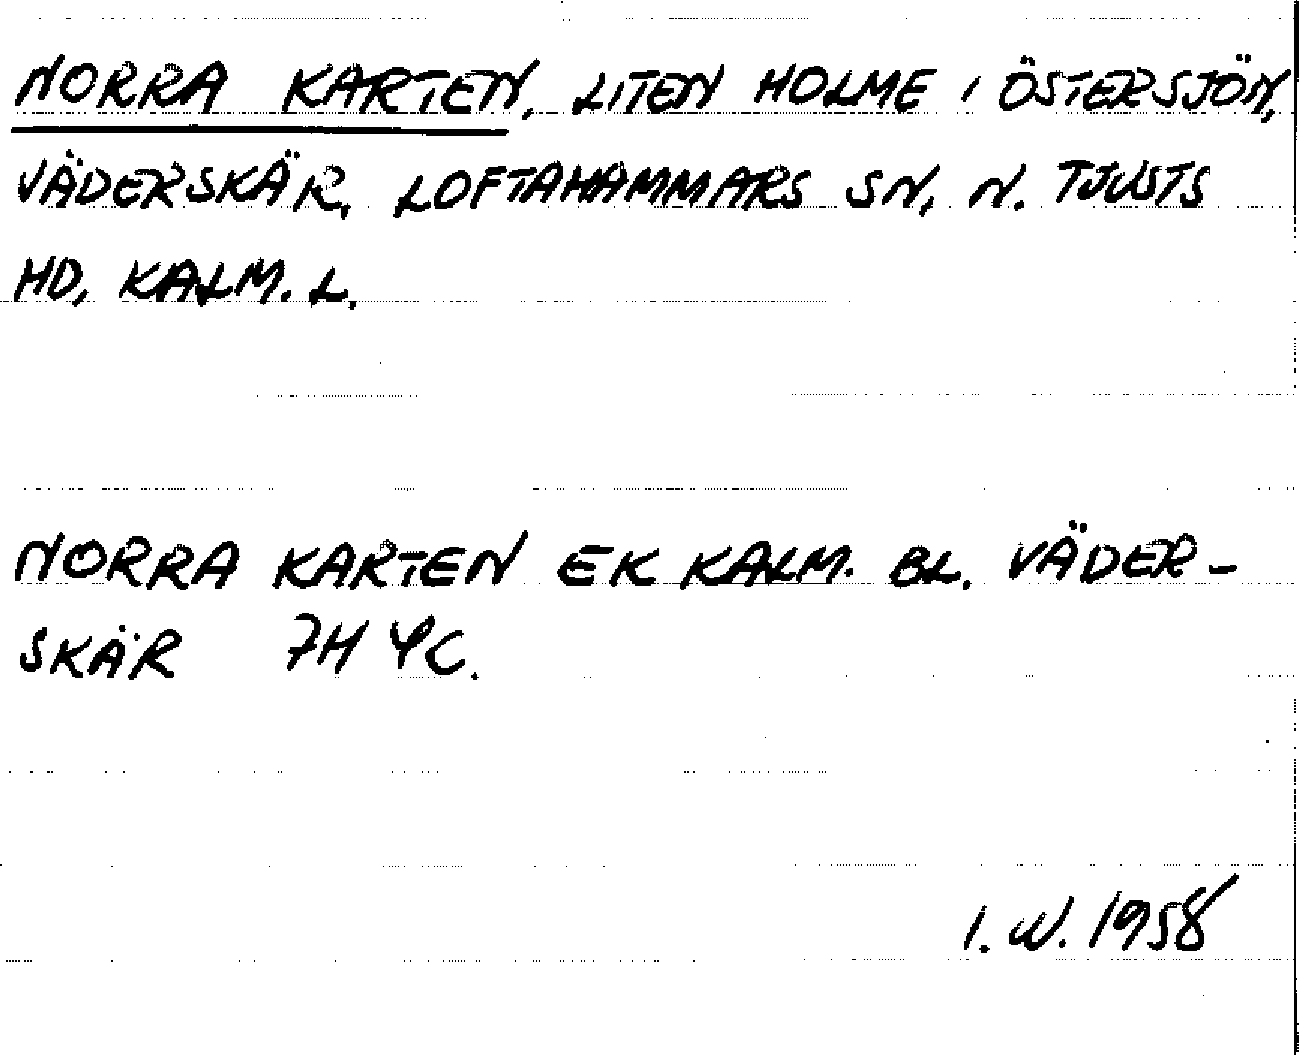 NORRA KARTEN, LITEN HOLME I ÖSTERSJÖN,
VÄDERSKÄR, LOFTAHAMMARS SN, N. TJUSTS
HD, KALM. L.
NORRA KARTEN EK KALM. BL. VÄDER-
SKÄR 7H 4C.
I. W. 1958